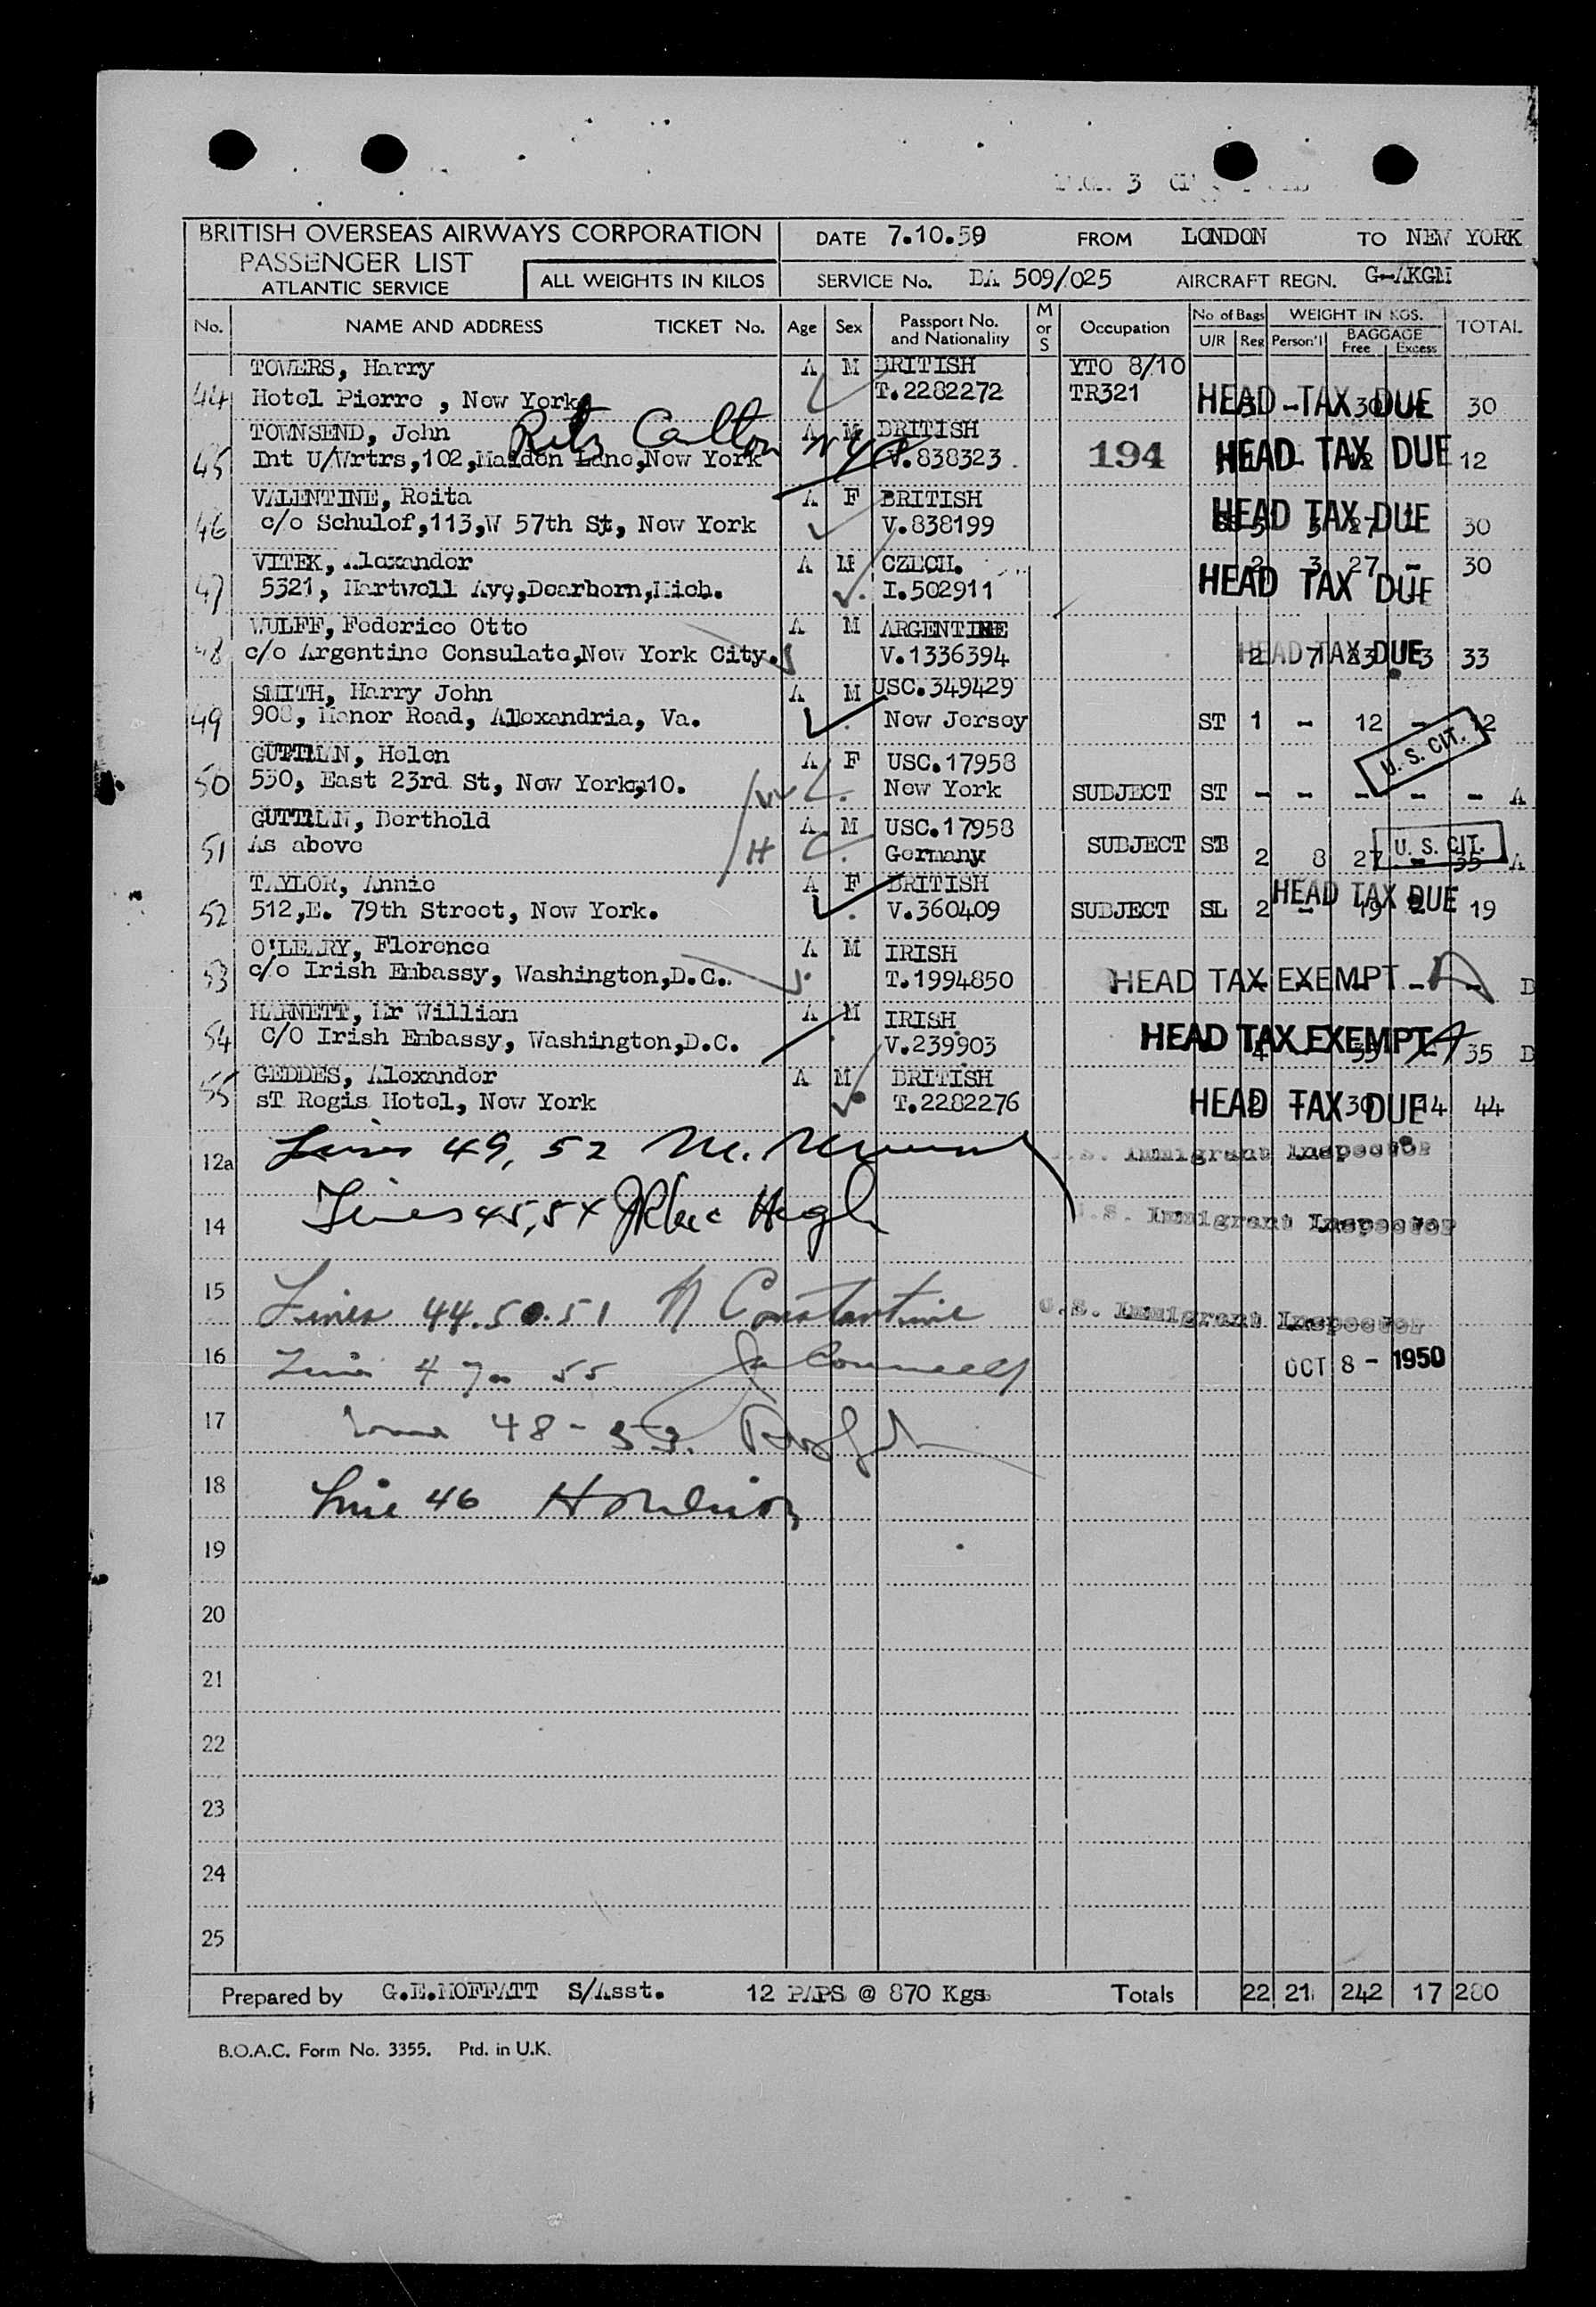 BRITISH OVERSEAS AIRWAYS CORPORATION
PASSENGER LIST
ATLANTIC SERVICE
ALL WEIGHTS IN KILOS
DATE 7.10.59 FROM LONDON TO NEW YORK
SERVICE No. BA 509/025 AIRCRAFT REGN. G-AKGM
No. NAME AND ADDRESS TICKET No. Age Sex Passport No. and Nationality M or S Occupation No of Bags U/R Reg WEIGHT IN KGS. Person'l BAGGAGE Free Excess TOTAL
TOWERS, Harry A M BRITISH YTO 8/10
44 Hotel Pierre , New York T.2282272 TR321 HEAD TAX DUE 30
TOWNSEND, John Ritz Carlton A M BRITISH
45 Int U/Wrtrs,102,Maiden Lane,New York V.838323 194 HEAD TAX DUE 12
VALENTINE, Roita A F BRITISH
46 c/o Schulof,113,W 57th St, New York V.838199 HEAD TAX DUE 30
VITEK, Alexander A M CZECH. 2 3 27 - 30
47 5321, Hartwell Ave,Dearborn,Mich. I.502911 HEAD TAX DUE
WULFF, Federico Otto A M ARGENTINE
48 c/o Argentine Consulate,New York City. V.1336394 HEAD TAX DUE 2 7 23 3 33
SMITH, Harry John A M USC.349429
49 908, Manor Road, Alexandria, Va. New Jersey ST 1 - 12 - 12
U. S. CIT.
GUTTMAN, Helen A F USC.17958
50 530, East 23rd St, New York,10. New York SUBJECT ST - - - - - A
GUTTMAN, Berthold A M USC.17958
51 As above H Germany SUBJECT ST 2 8 27 - 35 A
U. S. CIT.
TAYLOR, Annie A F BRITISH HEAD TAX DUE
52 512,E. 79th Street, New York. V.360409 SUBJECT SL 2 - 19 - 19
O'LEARY, Florence A M IRISH
53 c/o Irish Embassy, Washington,D.C. T.1994850 HEAD TAX EXEMPT - - D
HARNETT, Mr William A M IRISH
54 C/O Irish Embassy, Washington,D.C. V.239903 HEAD TAX EXEMPT 4 35 35 D
GEDDES, Alexander A M BRITISH
55 sT Regis Hotel, New York T.2282276 HEAD TAX DUE 30 14 44
12a Lines 49, 52 M. U.S. Immigrant Inspector
14 Lines 45,54 U.S. Immigrant Inspector
15 Lines 44.50.51 Constantine U.S. Immigrant Inspector
16 Line 47 55 OCT 8 - 1950
17 48 - 53.
18 Line 46
19
20
21
22
23
24
25
Prepared by G.E.MOFFATT S/Asst. 12 PAPS @ 870 Kgs Totals 22 21 242 17 280
B.O.A.C. Form No. 3355. Ptd. in U.K.